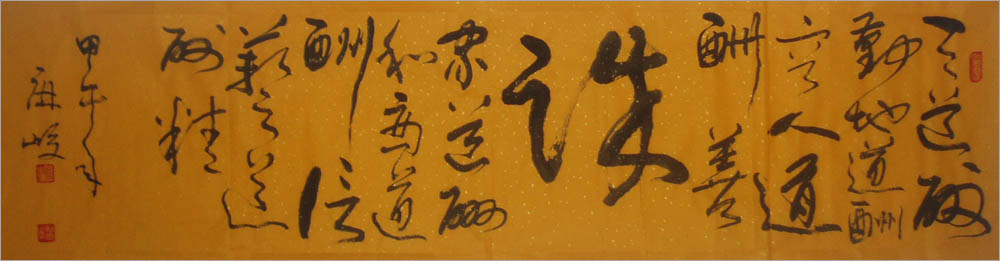 天道酬
勤地道酬
人道
酬善
家道酬
和商道
酬信
道
酬精
甲午年